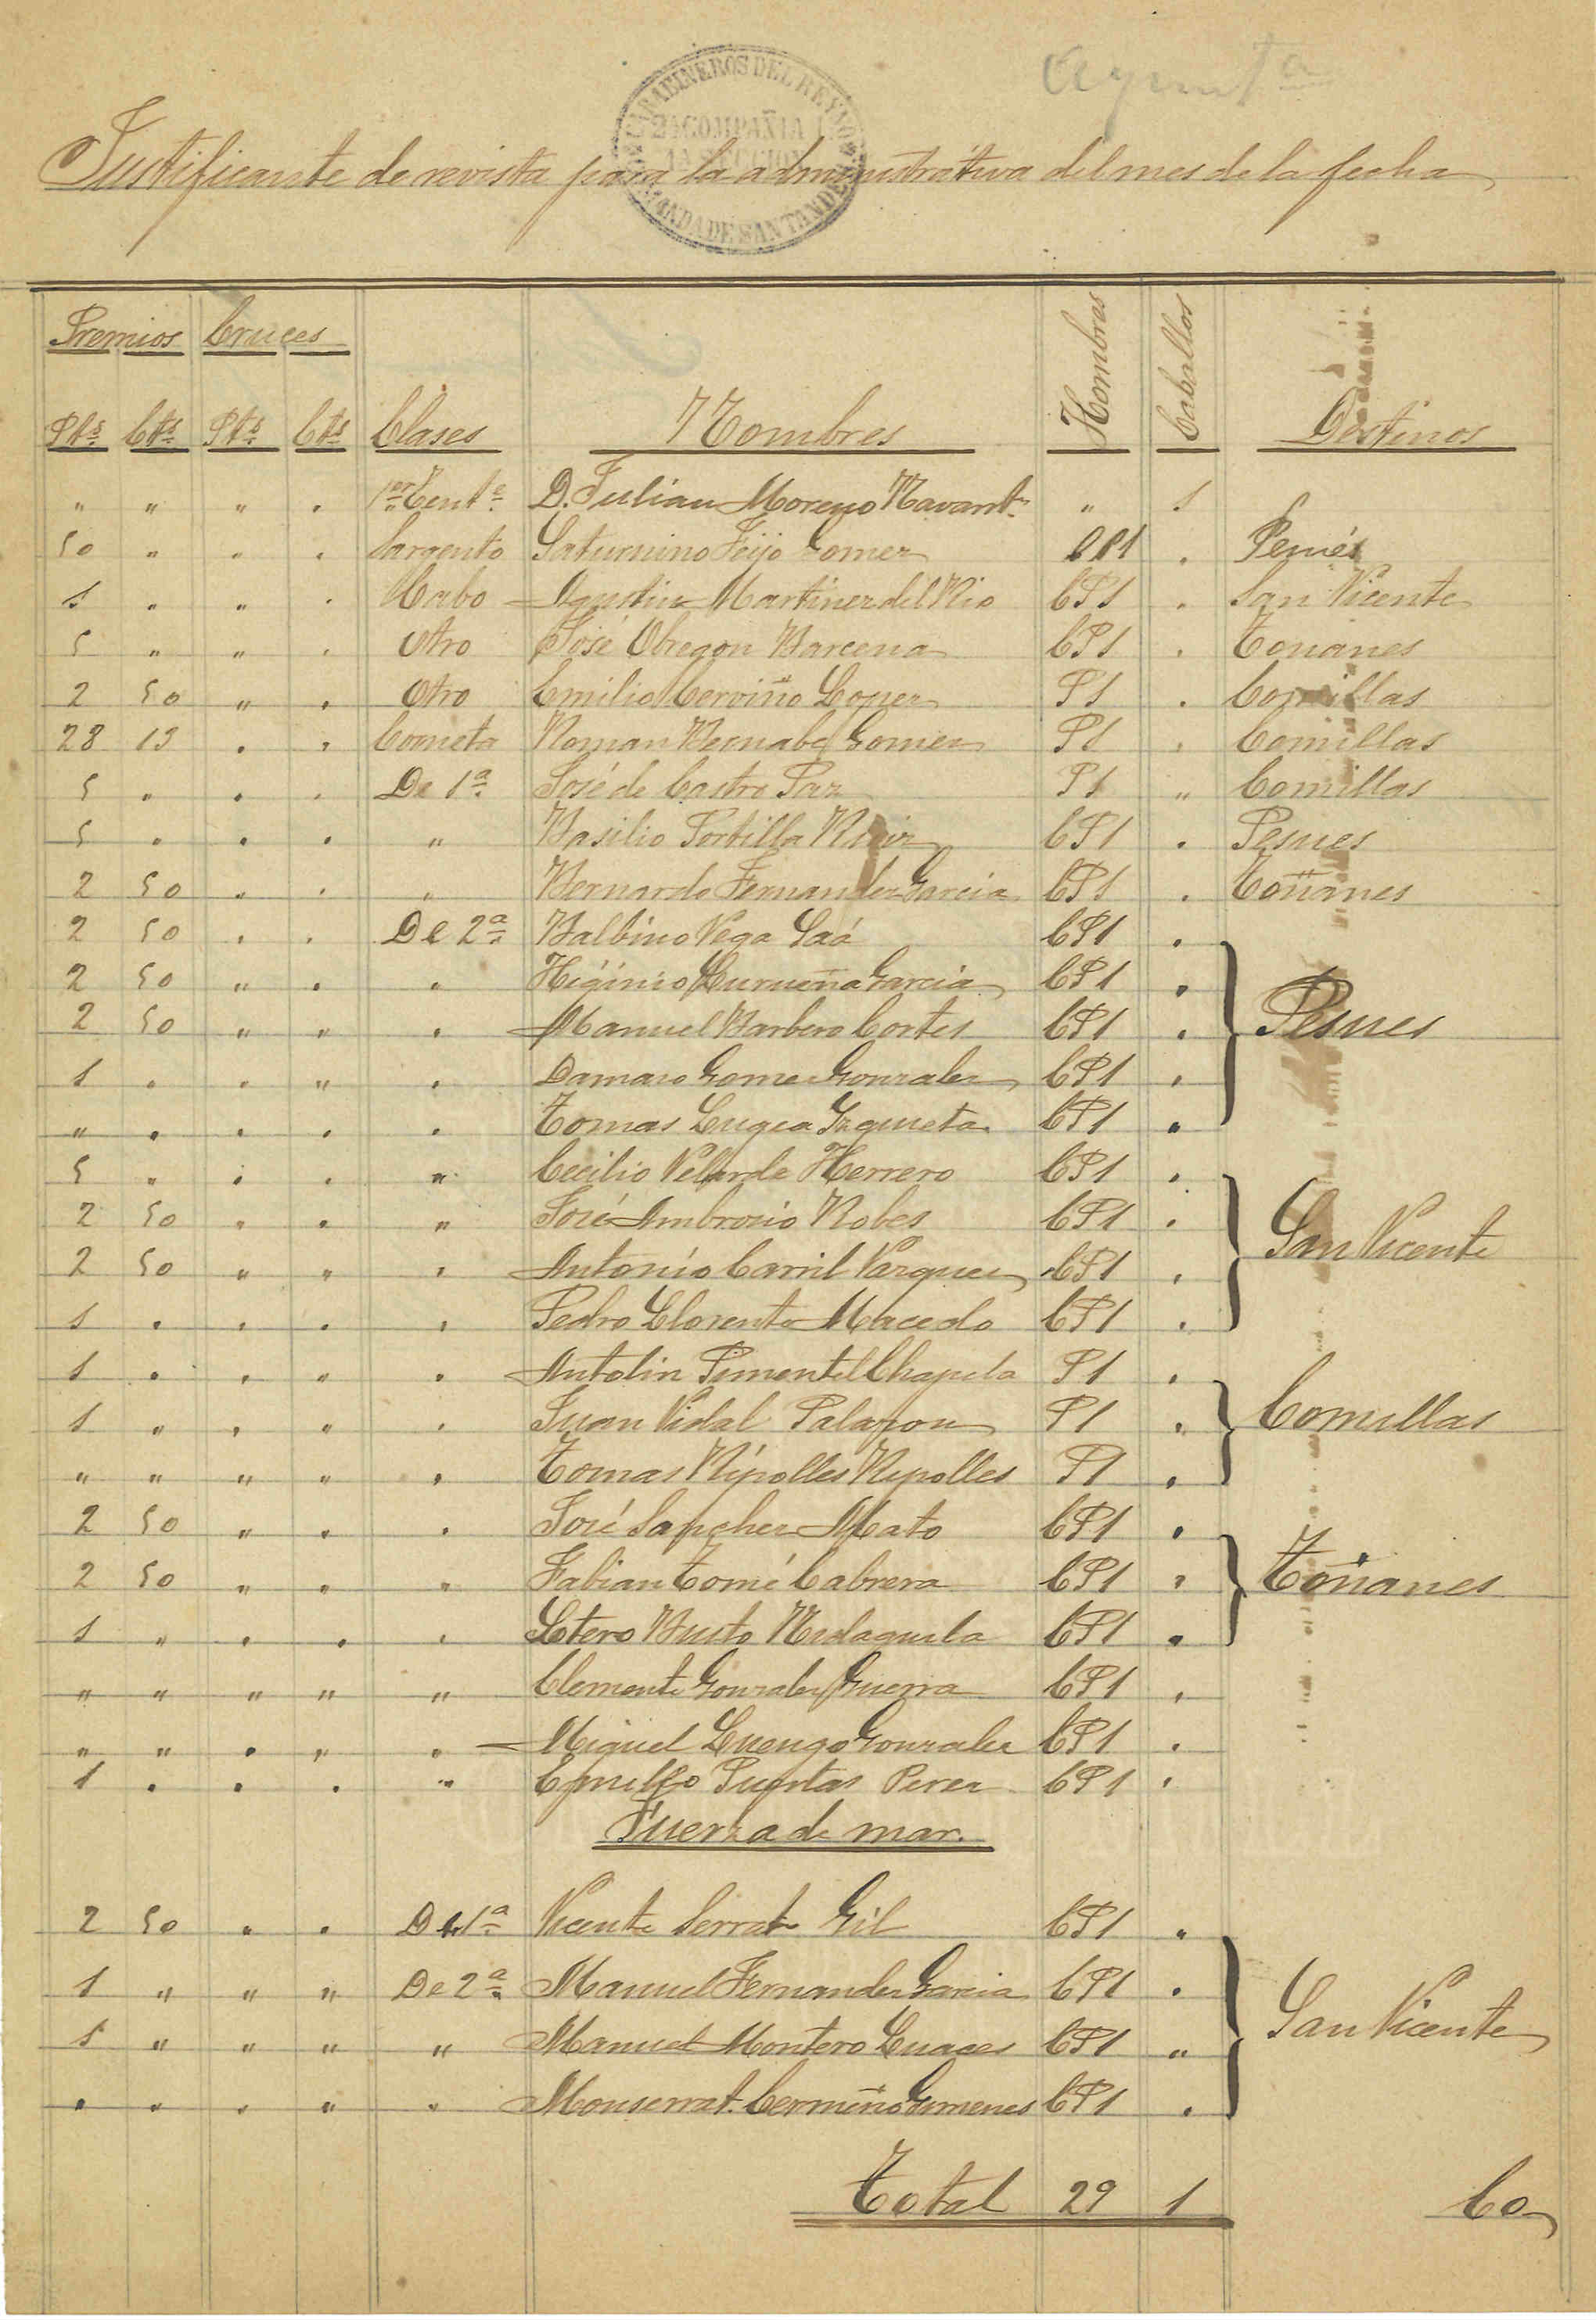 Ayunt.ª
CARABINEROS DEL REYNO
2ª COMPAÑIA
1ª SECCION
COMANDA DE SANTANDER
Justificante de revista para la administrativa del mes de la fecha
Premios Cruces
Pts Cts Pts Cts Clases Nombres Hombres Caballos Destinos
" " " . 1er Tente D. Julian Moreno Navart. " 1
50 " " . Sargento Saturnino Feijo Gomez 1 . Pesués
1 " " . Cabo Agustin Martinez del Rio CP1 . San Vicente
5 " " . Otro José Obregon Barcena CP1 . Toñanes
2 50 " . Otro Emilio Cerviño Lopez P1 . Comillas
28 13 . . Corneta Roman Bernabe Gomez P1 . Comillas
5 " . . De 1ª José de Castro Paz P1 " Comillas
5 " . . " Basilio Portilla Ruiz CP1 . Pesues
2 50 . . " Bernardo Fernandez Garcia CP1 . Toñanes
2 50 . . De 2ª Balbino Vega Saá CP1 .
2 50 " . " Higinio Curueña Garcia CP1 .
2 50 " " . Manuel Barbero Cortes CP1 . Pesues
1 . . " . Damaso Gomez Gonzalez CP1 .
" . . . . Tomas CP1 .
5 " . . " Cecilio Velarde Herrero CP1 .
2 50 " . " José Ambrosio Robes CP1 .
2 50 " " . Antonio Carril Vazquez CP1 . San Vicente
1 . . . . Pedro Llorente Macedo CP1 .
1 . . " . Antolin Pimentel Chapela P1 .
1 " . " . Juan Vidal Palazon P1 . Comillas
" " " " . Tomas Ripolles Ripolles P1 .
2 50 " . . José Sanchez Mato CP1 .
2 50 " . " Fabian Tomé Cabrera CP1 . Toñanes
1 " . . . Busto CP1 .
" " " " " Clemente Gonzalez Guerra CP1 .
" " . " . Miguel Luengo Gonzalez CP1 .
1 . . . " Emilio Puertas Perez CP1 .
Fuerza de mar.
2 50 " . De 1ª Vicente Serrat Gil CP1 .
1 " " " De 2ª Manuel Fernandez Garcia CP1 .
1 " " " " Manuel Montero Luaces CP1 " San Vicente
. " . " . Monserrat Cermeño Gimenes CP1 .
Total 29 1 Co